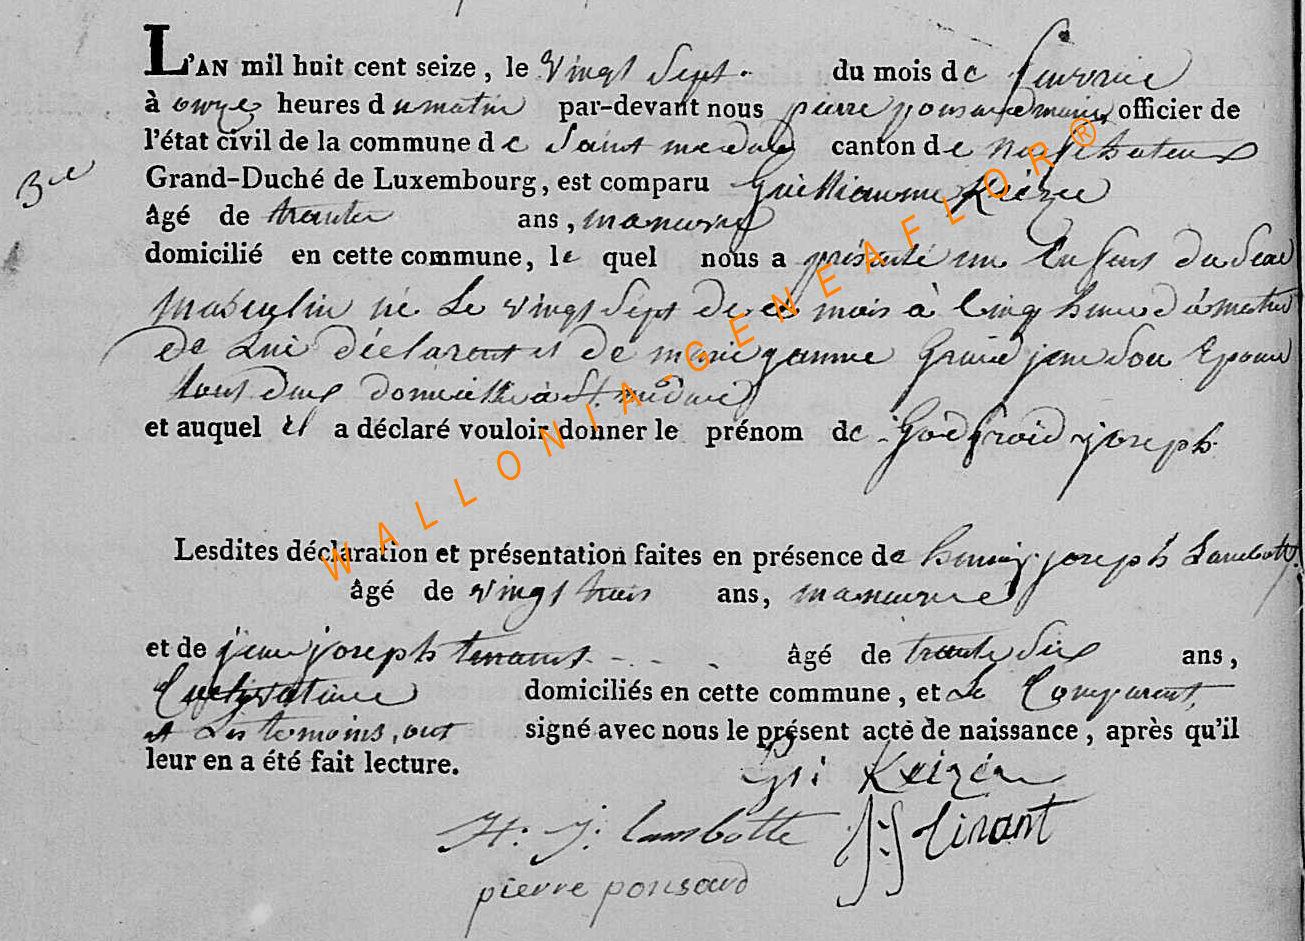 L'AN mil huit cent seize, le vingt sept. du mois de fevrie
à onze heures du matin par-devant nous pierre ponsard maire officier de
l'état civil de la commune de Saint medard canton de neufchateau
3me
Grand-Duché de Luxembourg, est comparu Guilliaume Keizer
âgé de trente ans, maneuvre
domicilié en cette commune, le quel nous a présenté un enfant du Sexe
Masculin né Le vingt Sept de ce mois à Cinq heure du matin
de Lui déclarant et de marie janne jean Son Epouse
tous deux domicillié à St. medard
et auquel il a déclaré vouloir donner le prénom de Godfroid joseph.
Lesdites déclaration et présentation faites en présence de henrij joseph Lambotte
âgé de vingt trois ans, maneuvre
et de jean joseph tenant - - - . âgé de trente Six ans,
Cultivateur domiciliés en cette commune, et Le Comparant,
et Les temoins, ont signé avec nous le présent acte de naissance, après qu'il
leur en a été fait lecture.
Gi Keizer
H. J. lambotte JJ tinant
pierre ponsard
WALLONIA-GENEAFLOR®